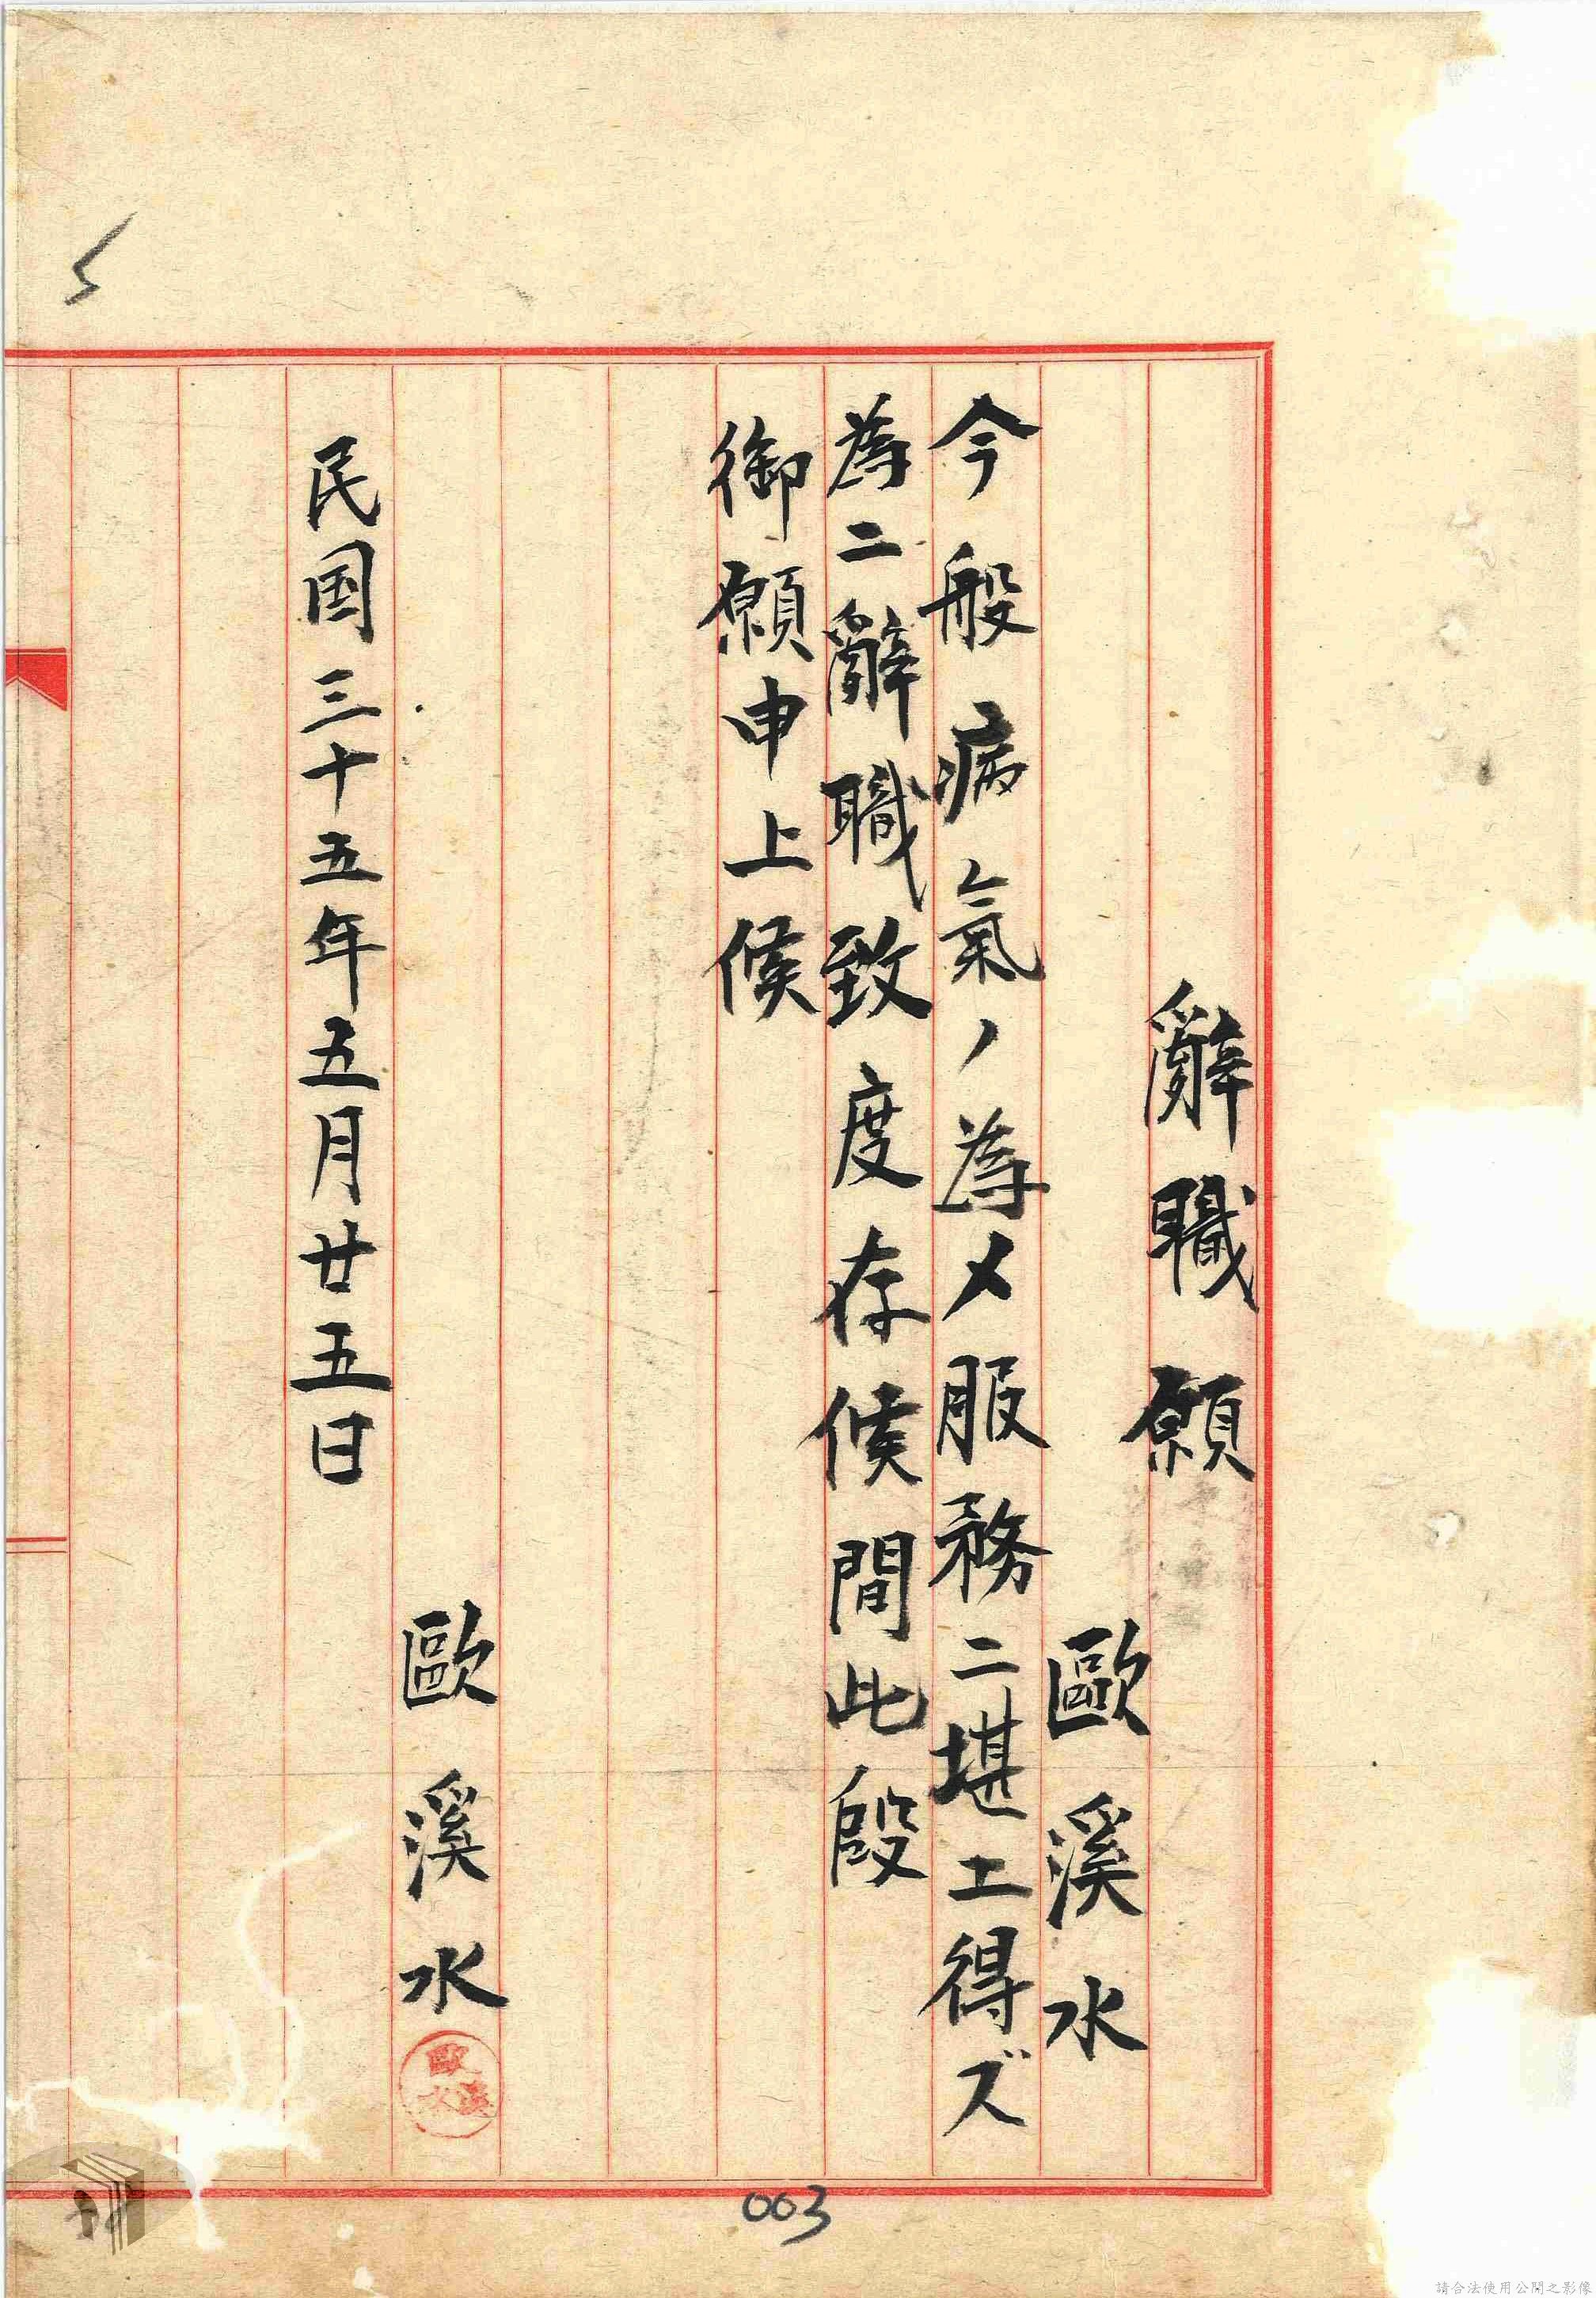 辭職願
歐溪水
今般病氣ノ為メ服務ニ堪エ得ズ
為ニ辭職致度存候間此段
御願申上候
歐溪水
歐溪水
民国三十五年五月廿五日
003
請合法使用公開之影像